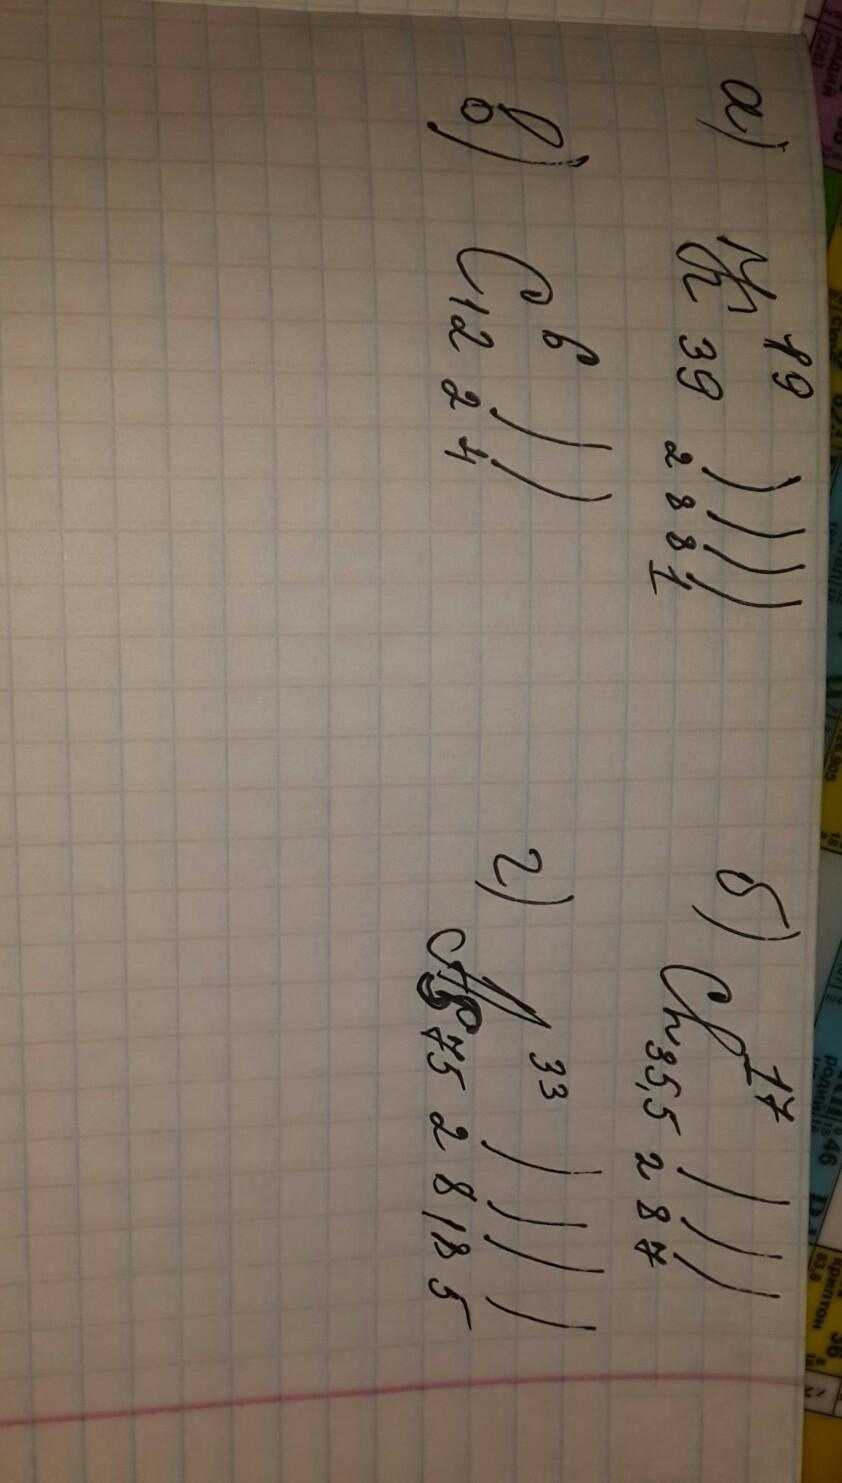 а) K 19 39 2 8 8 1
б) Cl 17 35,5 2 8 7
в) C 6 12 2 4
г) As 33 75 2 8 18 5
родий
46
криптон
36
83,8